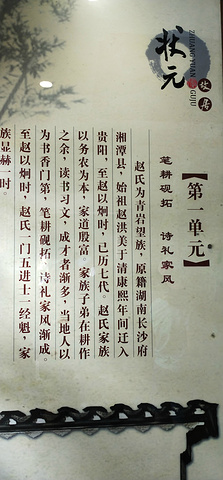 状元
故居
ZHUANG YUAN GUJU
【第一单元】
笔耕砚拓 诗礼家风
赵氏为青岩望族,原籍湖南长沙府
湘潭县,始祖赵洪美于清康熙年间迁入
贵阳,至赵以炯时,已历七代。赵氏家族
以务农为本,家道殷富。家族子弟在耕作
之余,读书习文,成才者渐多,当地人以
为书香门第,笔耕砚拓,诗礼家风渐成。
至赵以炯时,赵氏一门五进士一经魁,家
族显赫一时。